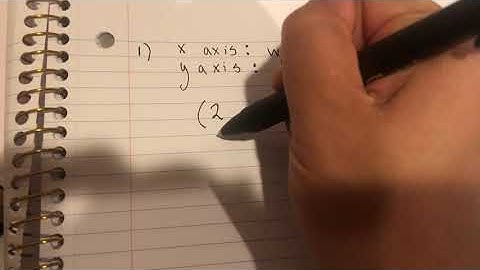 1) x axis: w
y axis:
(2